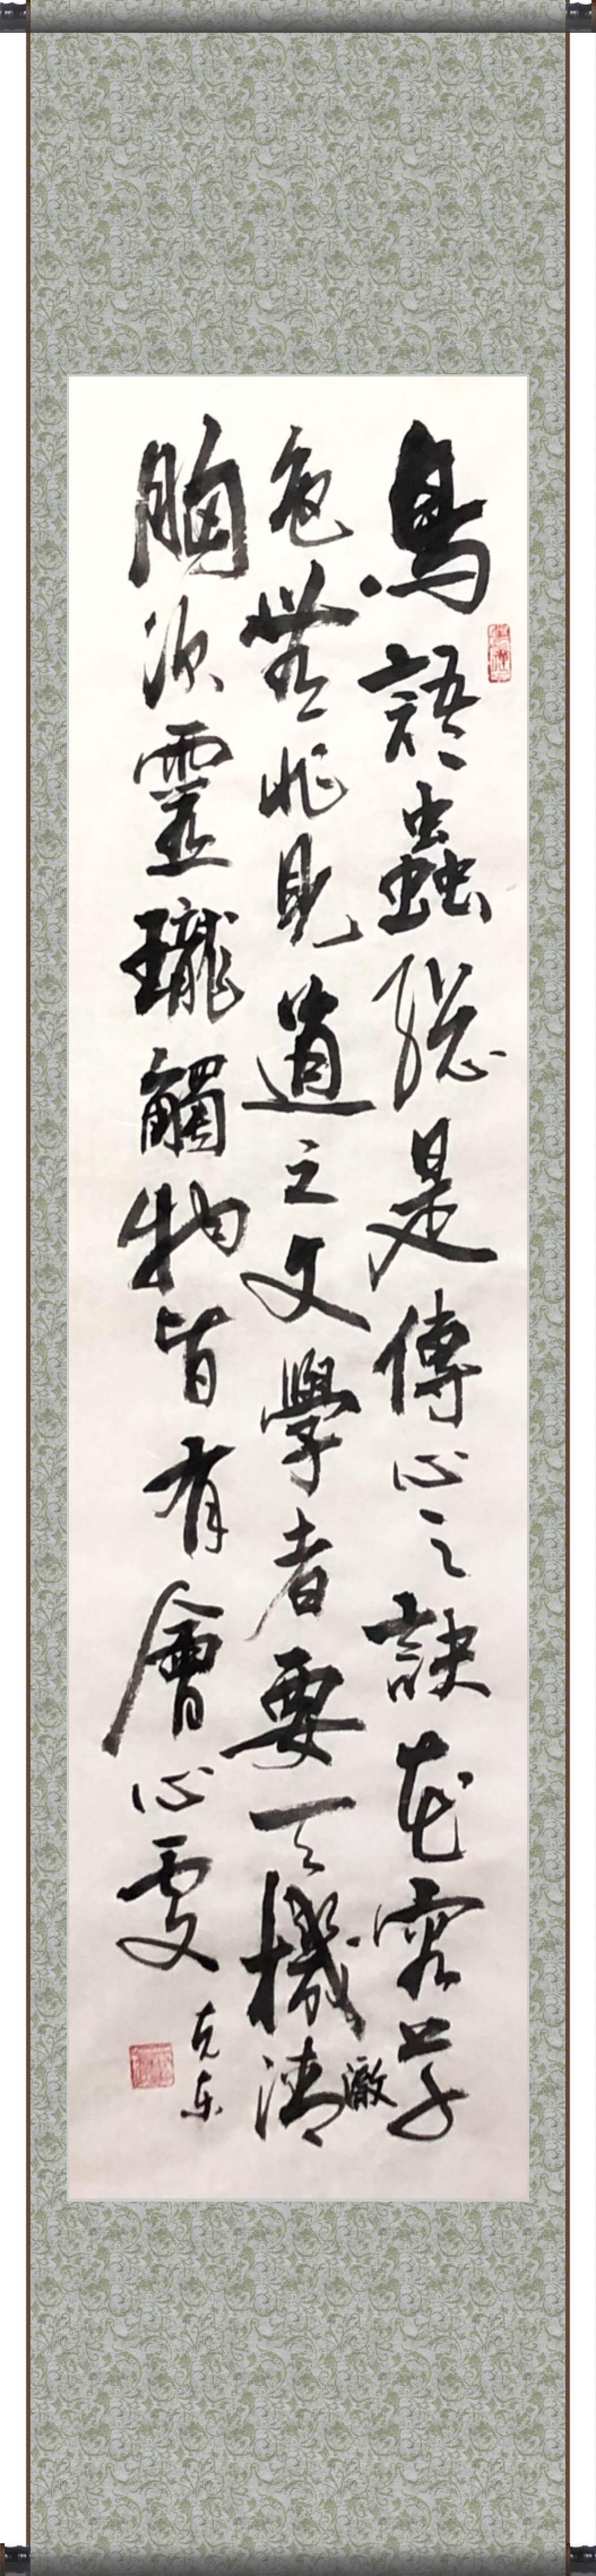 鳥語蟲聲總是傳心之訣花容草
色無非見道之文學者要天機清澈
胸次靈瓏觸物皆有會心處
克东